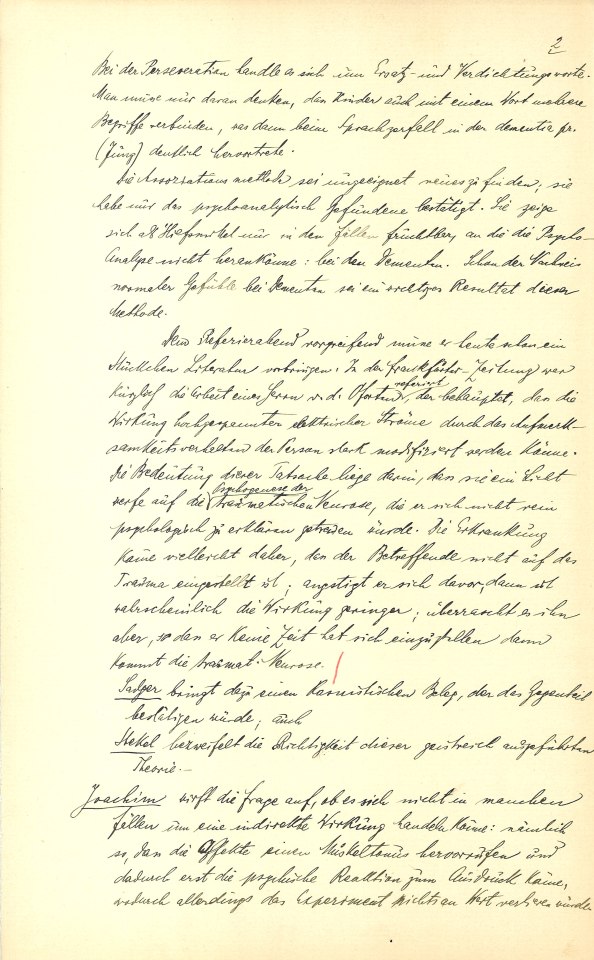 2
Bei der Perseveration handle es sich um Ersatz- und Verdichtungsworte.
Man müsse nur daran denken, dass Kinder auch mit einem Wort mehrere
Begriffe verbinden, was dann beim Sprachzerfall in der dementia pr.
(Jung) deutlich hervortrete.
Die Assoziationsmethode sei ungeeignet neues zu finden; sie
habe nur das psychoanalytisch Gefundene bestätigt. Sie zeige
sich als Hilfsmittel nur in den Fällen fruchtbar, an die die Psycho-
Analyse nicht herankönne: bei den Dementen. Schon der Nachweis
normaler Gefühle bei Dementen sei ein wichtiges Resultat dieser
Methode.
Dem Referierabend vorgreifend müsse er heute schon ein
Stückchen Literatur vorbringen. In der Frankfurter-Zeitung war
kürzlich die Arbeit eines Herrn v. d. referiert, der behauptet, dass die
Wirkung hochgespannter elektrischer Ströme durch das Aufmerk-
samkeitsverhalten der Person stark modifiziert werden könne.
Die Bedeutung dieser Tatsache liege darin, dass sie ein Licht
werfe auf die Psychogenese der traumatischen Neurose, die er sich nicht rein
psychologisch zu erklären getrauen würde. Die Erkrankung
käme vielleicht daher, dass der Betreffende nicht auf das
Trauma eingestellt ist; ängstigt er sich davor, dann ist
wahrscheinlich die Wirkung geringer; überrascht es ihn
aber, so dass er keine Zeit hat sich einzustellen dann
kommt die traumat. Neurose.
Sadger bringt dazu einen kasuistischen Beleg, der das Gegenteil
bestätigen würde; auch
Stekel bezweifelt die Richtigkeit dieser geistreich ausgeführten
Theorie.-
Joachim wirft die Frage auf, ob es sich nicht in manchen
Fällen um eine indirekte Wirkung handeln könne: nämlich
so, dass die Affekte einen Muskeltonus hervorrufen und
dadurch erst die psychische Reaktion zum Ausdruck käme,
wodurch allerdings das Experiment nichts an Wert verlieren würde.